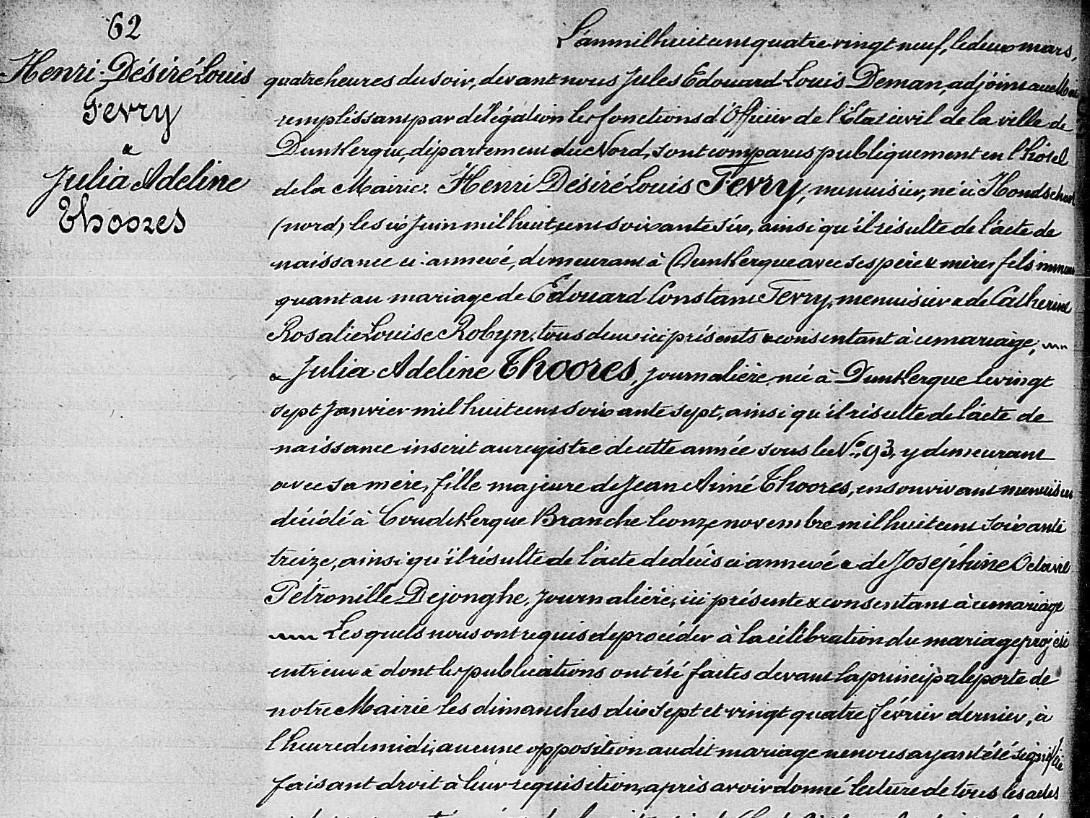 62
Henri Désiré Louis
Ferry
&
Julia Adeline
Thoores
L'an mil huit cent quatre vingt neuf, le deux mars,
quatre heures du soir, devant nous Jules Edouard Louis Deman, adjoint au Maire
remplissant par délégation les fonctions d'Officier de l'Etat civil de la ville de
Dunkerque, département du Nord, sont comparus publiquement en l'hôtel
de la Mairie. Henri Désiré Louis Ferry, menuisier, né à Hondschoote
(nord) le six Juin mil huit cent soixante six, ainsi qu'il résulte de l'acte de
naissance ci-annexé, demeurant à Dunkerque avec ses père & mère, fils mineur
quant au mariage de Edouard Constant Ferry, menuisier & de Catherine
Rosalie Louise Robyn, tous deux ici présents & consentant à ce mariage,
& Julia Adeline Thoores, journalière, née à Dunkerque le vingt
sept Janvier mil huit cent soixante sept, ainsi qu'il résulte de l'acte de
naissance inscrit au registre de cette année sous le No. 93, y demeurant
avec sa mère, fille majeure de Jean Aimé Thoores, en son vivant menuisier
décédé à Coudekerque Branche le onze novembre mil huit cent soixante
treize, ainsi qu'il résulte de l'acte de décès ci annexé & de Joséphine Octavie
Pétronille Dejonghe, Journalière, ici présente & consentant à ce mariage
Lesquels nous ont requis de procéder à la célébration du mariage projeté
entr'eux & dont les publications ont été faites devant la principale porte de
notre Mairie les dimanches dix sept et vingt quatre février dernier, à
l'heure de midi, aucune opposition au dit mariage ne nous ayant été signifiée
faisant droit à leur requisition, après avoir donné lecture de tous les actes